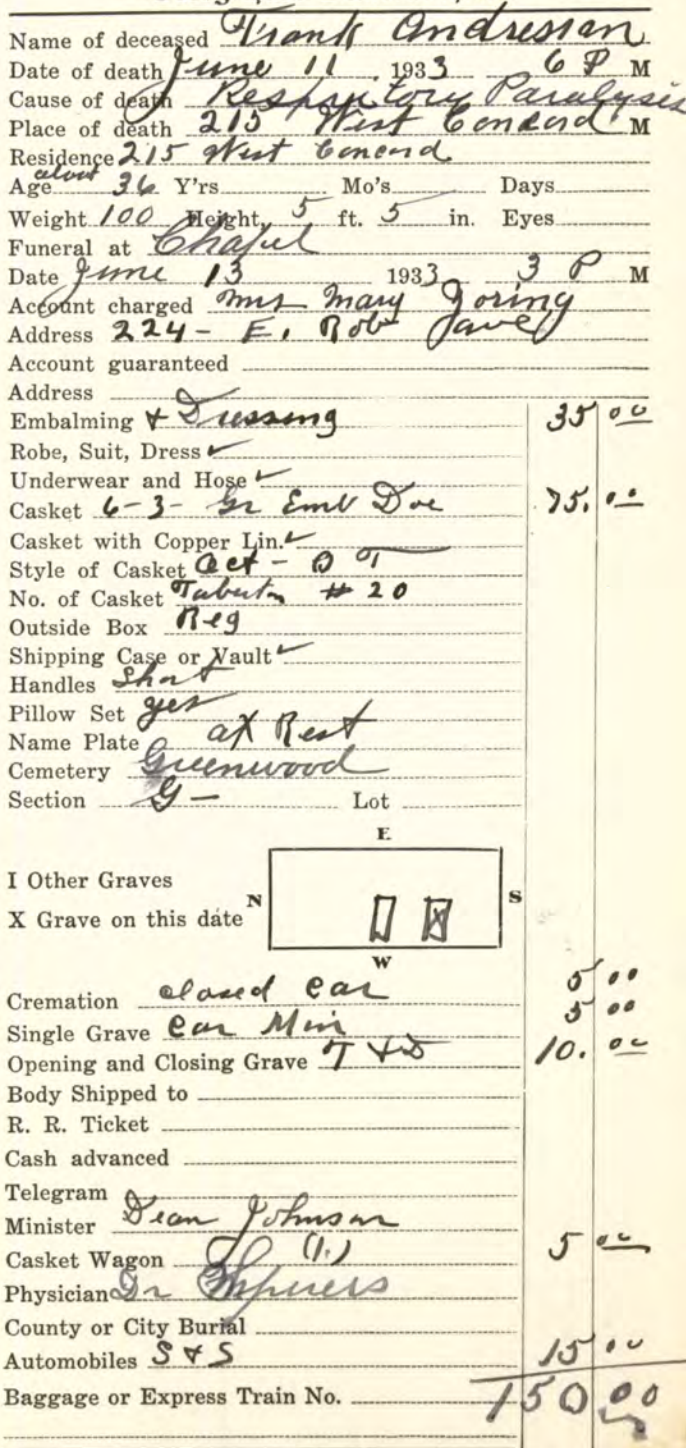 Name of deceased Frank Andressan
Date of death June 11 1933 6 P M
Cause of death Respiratory Paralysis
Place of death 215 West Concord M
Residence 215 West Concord
Age about 36 Y'rs Mo's Days
Weight 100 Height 5 ft. 5 in. Eyes
Funeral at Chapel
Date June 13 1933 3 P M
Account charged Mrs Mary Joring
Address 224- E. Rob
Account guaranteed
Address
Embalming + Dressing 35 00
Robe, Suit, Dress ✓
Underwear and Hose ✓
Casket 6-3- Gr Emb Doe 75. 00
Casket with Copper Lin. ✓
Style of Casket Oct -
No. of Casket # 20
Outside Box Reg
Shipping Case or Vault ✓
Handles Short
Pillow Set yes
Name Plate at Rest
Cemetery Greenwood
Section G - Lot
E
I Other Graves
N S
X Grave on this date
W
Cremation closed car 5 00
Single Grave Car Min 5 00
Opening and Closing Grave 10. 00
Body Shipped to
R. R. Ticket
Cash advanced
Telegram
Minister Dean Johnson
Casket Wagon (1.) 5 00
Physician Dr
County or City Burial
Automobiles S & S 15 00
Baggage or Express Train No. 150 00